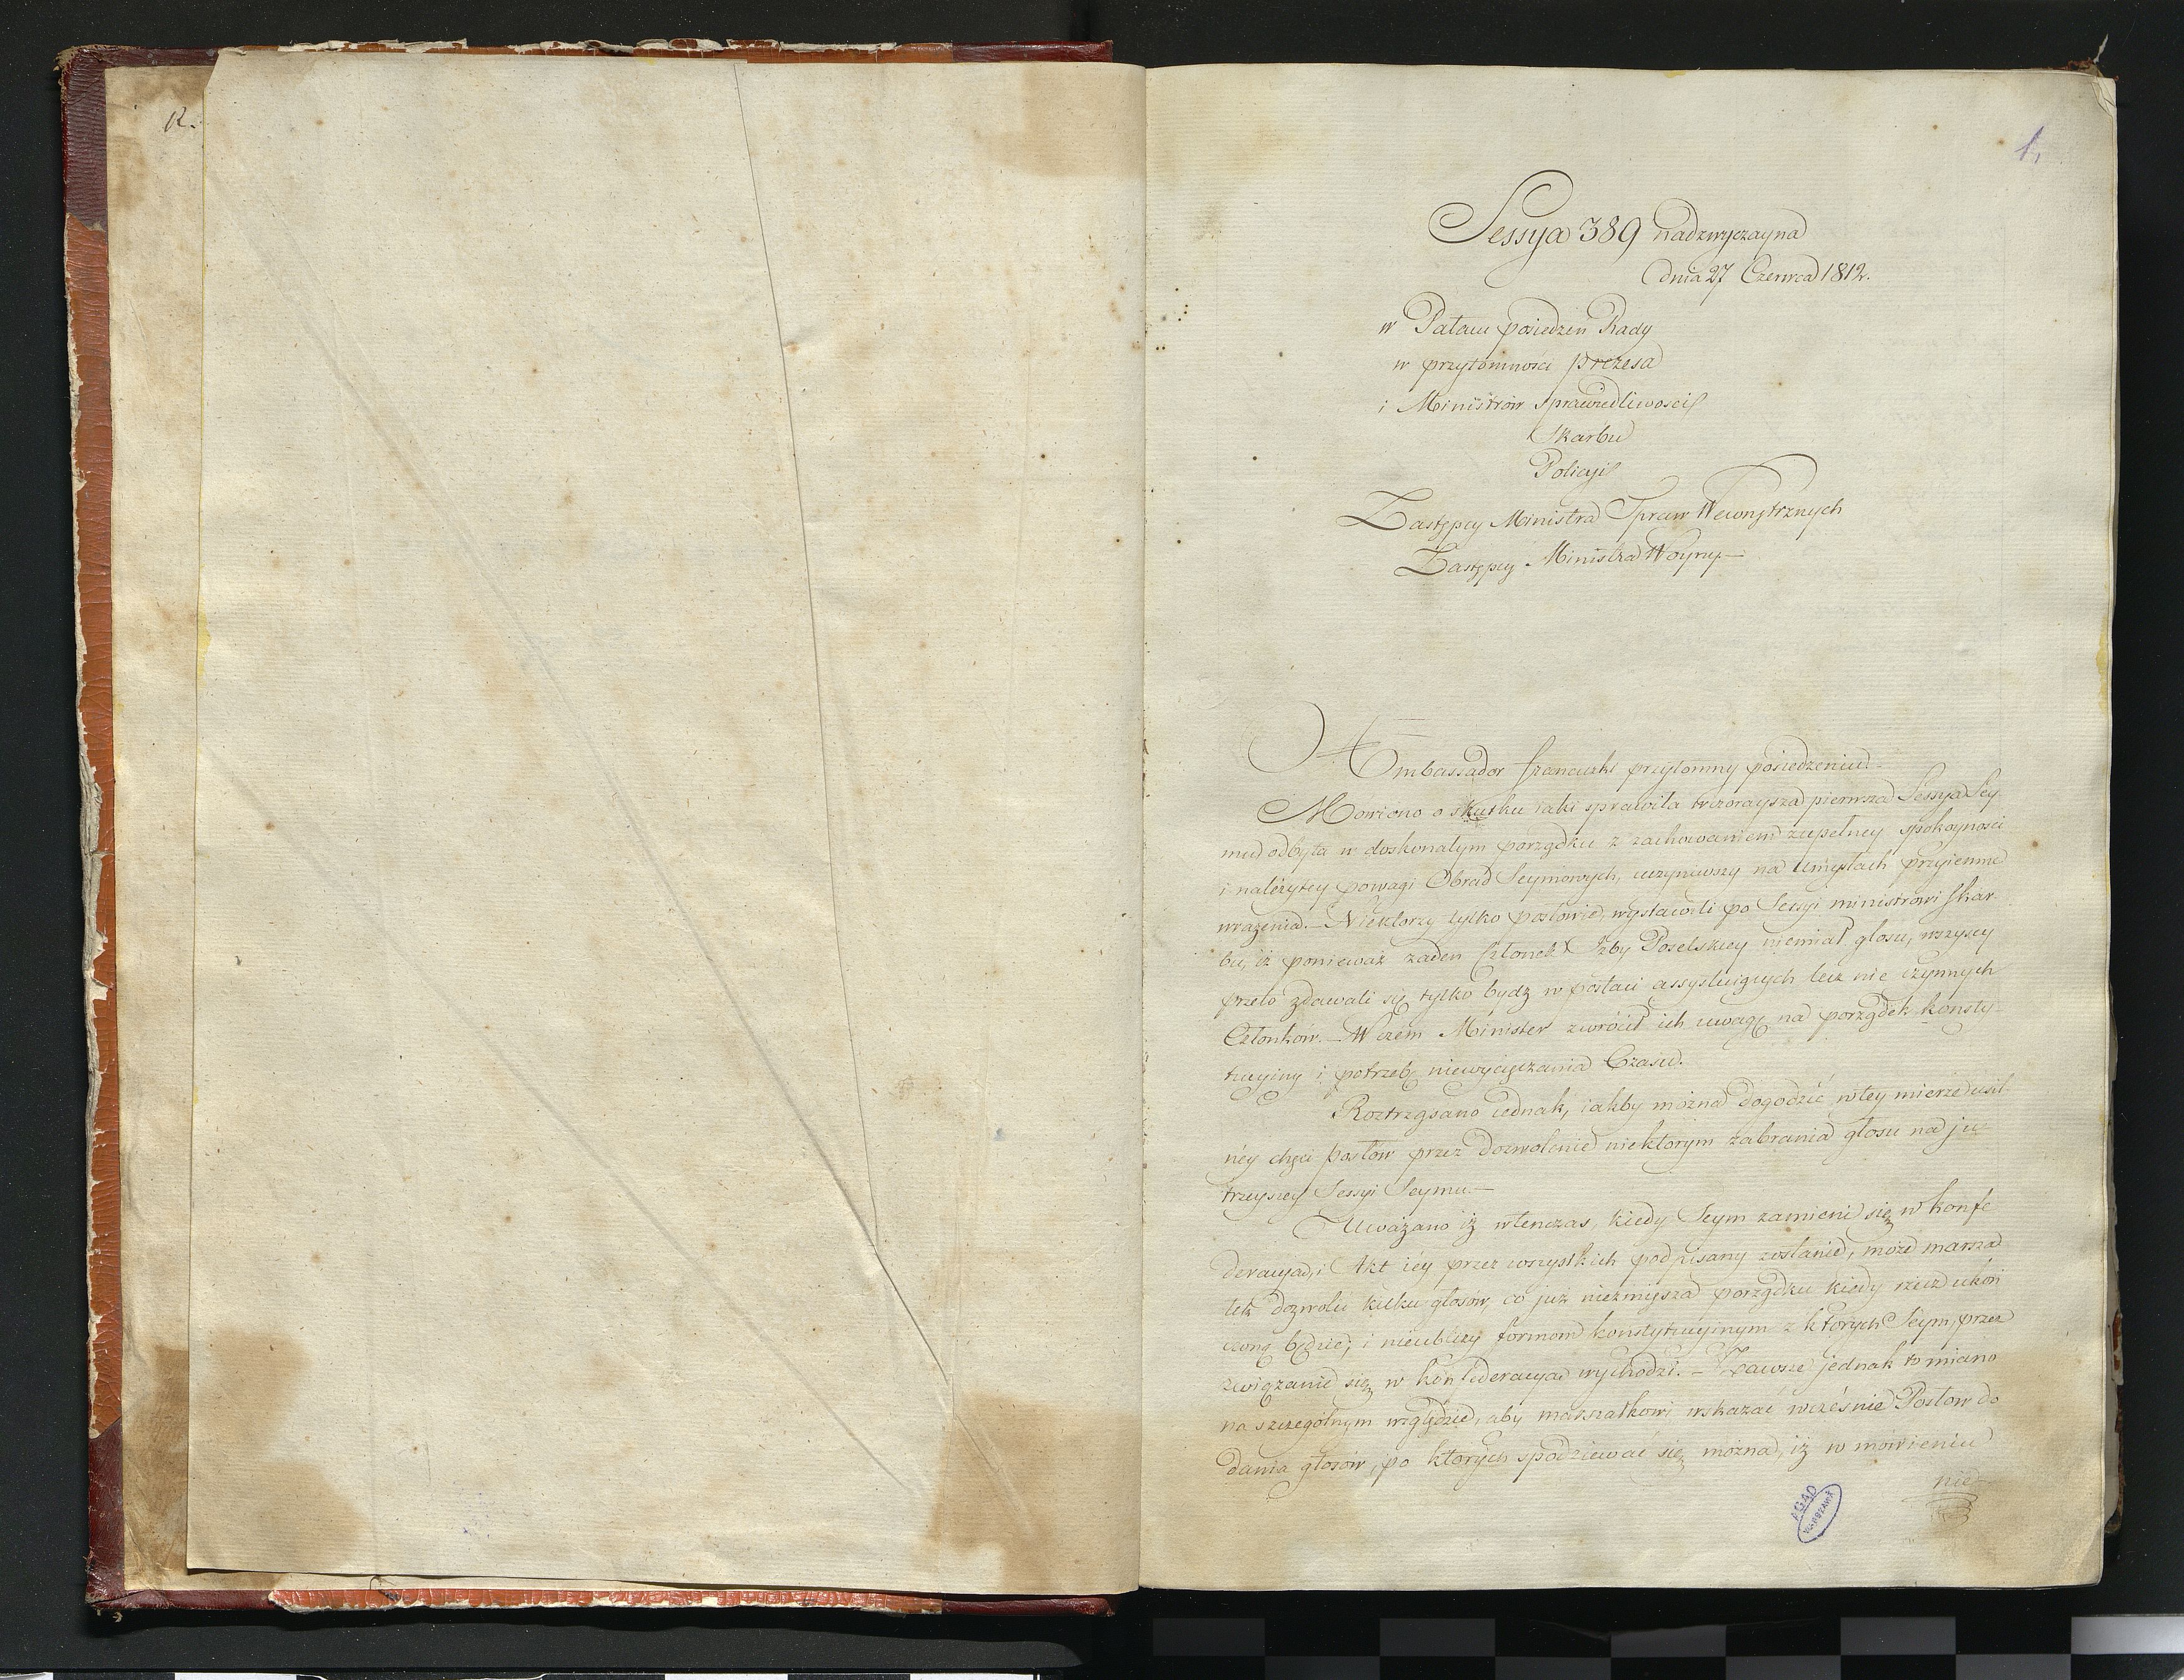 R.
1,
Sessya 389 nadzwyczayna
dnia 27 Czerwca 1812.
w Pałacu posiedzeń Rady
w przytomności Prezesa
i Ministrów Sprawiedliwości
Skarbu
Policyi
Zastępcy Ministra Spraw Wewnętrznych
Zastępcy Ministra Woyny —
Ambassador francuzki przytomny posiedzeniu. —
Mówiono o skutku iaki sprawiła wczoraysza pierwsza Sessya Sey
mu odbyta w doskonałym porządku z zachowaniem zupełney spokoyności
i należytey powagi Obrad Seymowych, uczyniwszy na umysłach przyiemne
wrażenia. — Niektorzy tylko posłowie, wystawili po Sessyi ministrowi Skar
bu, iż ponieważ żaden Członek Izby Poselskiey niemiał głosu, wszyscy
przeto zdawali się tylko bydź w postaci assystuiących lecz nie czynnych
Członków. — W czem Minister zwrócił ich uwagę na porządek konsty-
tucyiny i potrzebę niewyciężania Czasu.
Roztrząsano iednak, iakby można dogodzić w tey mierze usil
ney chęci posłów przez dozwolenie niektorym zabrania głosu na ju-
trzeyszey Sessyi Seymu. —
Uważano iż wtenczas, kiedy Seym zamieni się w konfe
deracyą, i Akt iéy przez wszystkich podpisany zostanie, może marsza
łek dozwolić kilku głosów, co już niezmiesza porządku kiedy rzecz ukoń
czoną będzie, i nieubliży formom konstytucyinym z których Seym, przez
związanie się w konfederacyą wychodzi. — Zawsze jednak to miano
na szczególnym względzie, aby marszałkowi wskazać wcześnie Posłów do
dania głosów, po których spodziewać się można, iż w mówieniu
nie
AGAD
WARSZAWA